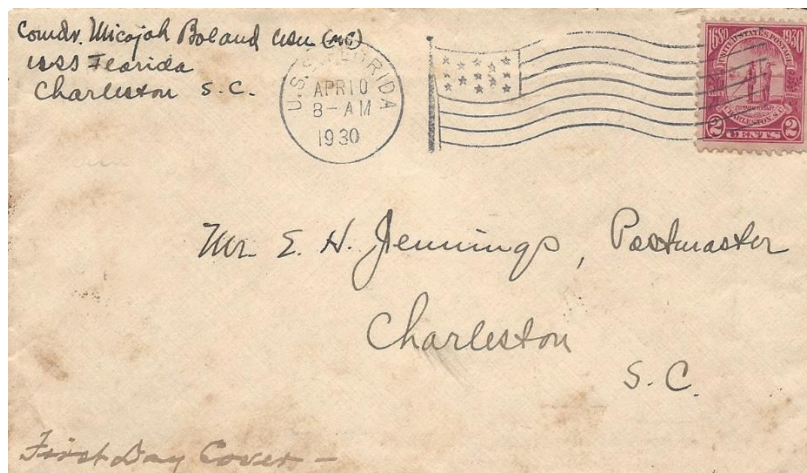 Comdr. Micajah Boland USN (MC)
USS Florida
Charleston S.C.
U.S.S. FLORIDA
APR 10
8-AM
1930
1680 1930
UNITED STATES POSTAGE
CHARLESTON, S.C.
2 CENTS 2
Mr. E. H. Jennings, Postmaster
Charleston
S.C.
First Day Cover -